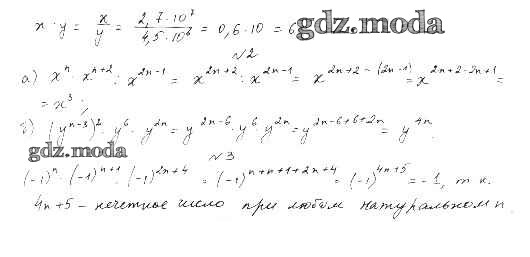 x : y = x/y = 2,7·10⁷/4,5·10⁶ = 0,6·10 = 6 gdz.moda
№2
а) xⁿ · xⁿ⁺² : x²ⁿ⁻¹ = x²ⁿ⁺² : x²ⁿ⁻¹ = x²ⁿ⁺² ⁻ ⁽²ⁿ⁻¹⁾ = x²ⁿ⁺²⁻²ⁿ⁺¹ =
= x³;
б) (yⁿ⁻³)² · y⁶ · y²ⁿ = y²ⁿ⁻⁶ · y⁶ · y²ⁿ = y²ⁿ⁻⁶⁺⁶⁺²ⁿ = y⁴ⁿ
gdz.moda
№3
(-1)ⁿ · (-1)ⁿ⁺¹ · (-1)²ⁿ⁺⁴ = (-1)ⁿ⁺ⁿ⁺¹⁺²ⁿ⁺⁴ = (-1)⁴ⁿ⁺⁵ = -1, т к.
4n+5 – нечетное число при любом натуральном n